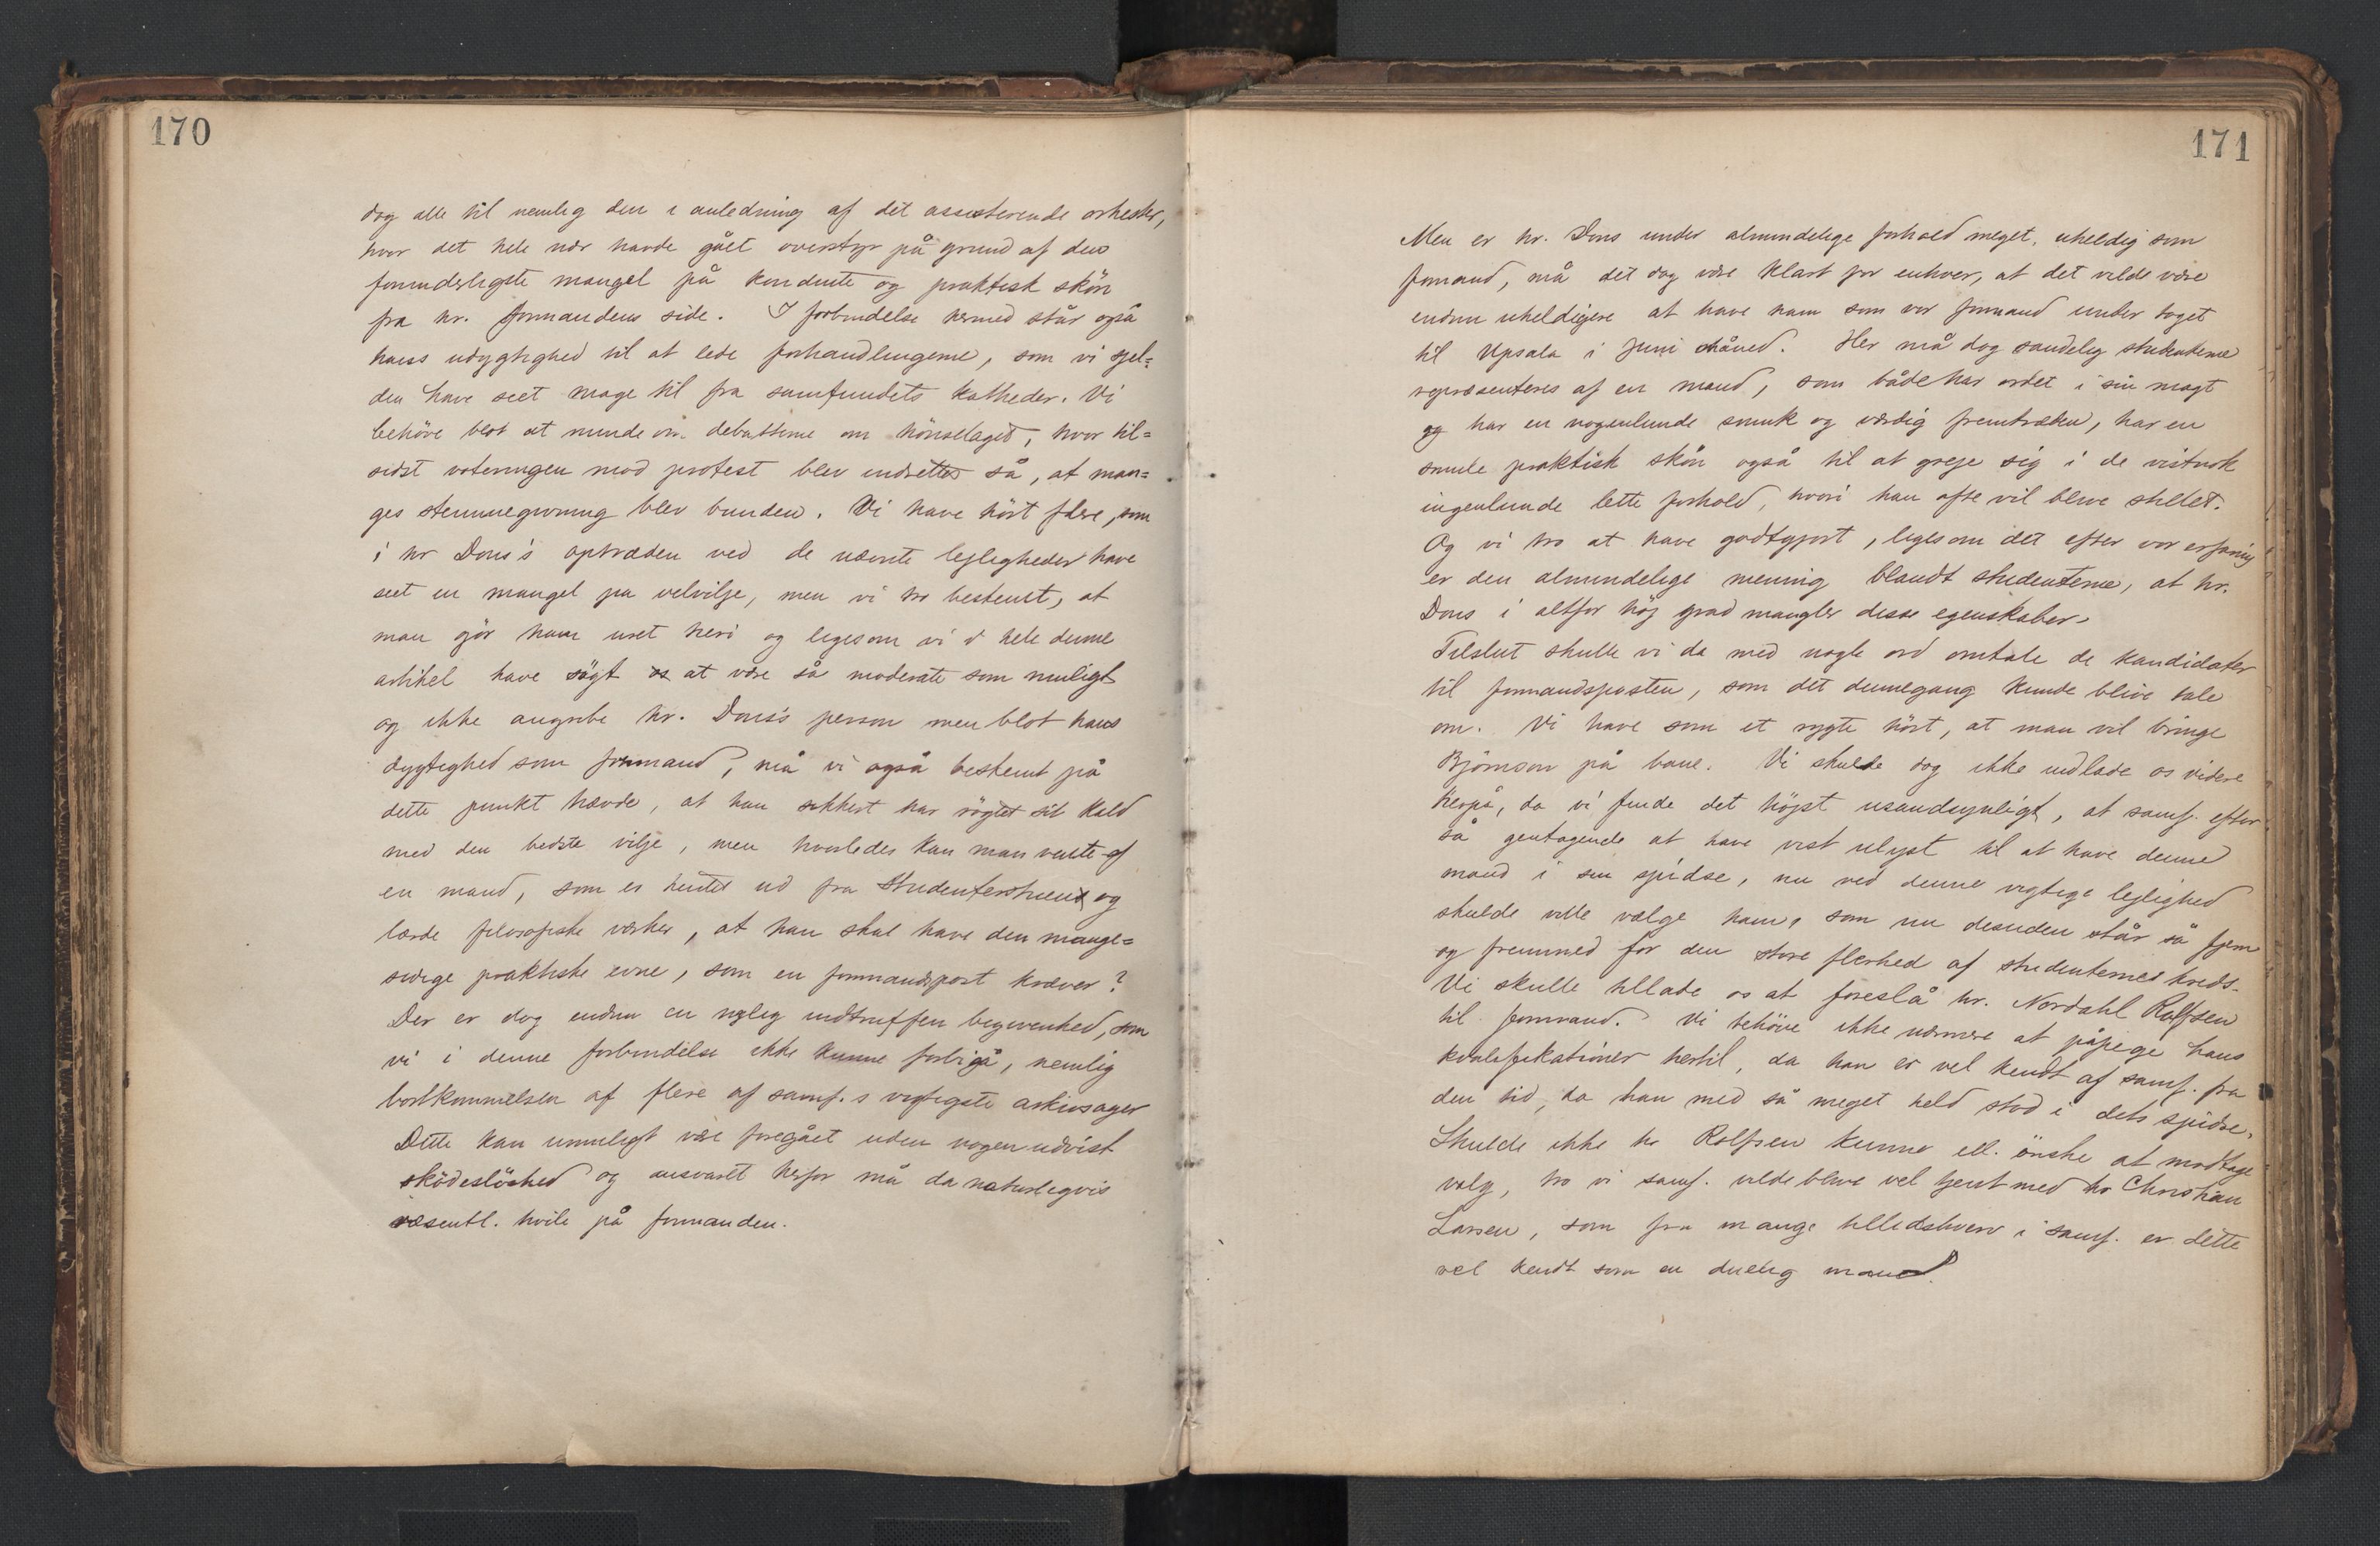 170
dog alle til nemlig den i anledning af det assisterende orkester,
hvor det hele nær havde gået overstyr på grund af den
forunderligste mangel på konduite og praktisk skön
fra hr. formandens side. I forbindelse hermed står også
hans udygtighed til at lede forhandlingerne, som vi sjel=
den have seet mage til fra samfundets katheder. Vi
behöve blot at minde om debatterne om hönselaget, hvor til=
sidst voteringen mod protest blev indrettet så, at man=
ges stemmegivning blev bunden. Vi have hört flere, som
i hr Dons's optræden ved de nævnte lejligheder have
seet en mangel på velvilje, men vi tro bestemt, at
man gör ham uret heri og ligesom vi i hele denne
artikel have sögt os at være så moderate som muligt
og ikke angribe hr. Dons's person men blot hans
dygtighed som formand, må vi også bestemt på
dette punkt hævde, at han sikkert har rögtet sit kald
med den bedste vilje, men hvorledes kan man vente af
en mand, som er hentet ud fra Studenterstuens og
lærde filosofiske værker, at han skal have den mange=
sidige praktiske evne, som en formandspost kræver?
Der er dog endnu en nylig indtruffen begivenhed, som
vi i denne forbindelse ikke kunne forbigå, nemlig
bortkommelsen af flere af samf.s vigtigste arkivsager
Dette kan umuligt være foregået uden nogen udvist
sködeslöshed og ansvaret herfor må da naturligvis
væsentl. hvile på formanden.
171
Men er hr. Dons under almindelige forhold meget uheldig som
formand, må det dog være klart for enhver, at det vilde være
endnu uheldigere at have ham som vor formand under toget
til Upsala i Juni måned. Her må dog sandelig studenterne
repræsenteres af en mand, som både har ordet i sin magt
og har en nogenlunde smuk og værdig fremtræden, har en
smule praktisk skön også til at greje sig i de vistnok
ingenlunde lette forhold, hvori han ofte vil blive stillet.
Og vi tro at have godtgjort, ligesom det efter vor erfaring
er den almindelige mening blandt studenterne, at hr.
Dons i altfor höj grad mangler disse egenskaber.
Tilslut skulle vi da med nogle ord omtale de kandidater
til formandsposten, som det dennegang kunde blive tale
om. Vi have som et rygte hört, at man vil bringe
Björnson på bane. Vi skulde dog ikke indlade os videre
herpå, da vi finde det höjst usandsynligt, at samf. efter
så gentagende at have vist ulyst til at have denne
mand i sin spidse, nu ved denne vigtige lejlighed
skulde ville vælge ham, som nu desuden står så fjern
og fremmed for den store flerhed af studenternes kreds.
Vi skulle tillade os at foreslå hr. Nordahl Rolfsen
til formand. Vi behöve ikke nærmere at påpege hans
kvalifikationer hertil, da han er vel kendt af samf. fra
den tid, da han med så meget held stod i dets spidse.
Skulde ikke hr Rolfsen kunne ell. önske at modtage
valg, tro vi samf. vilde blive vel tjent med hr Christian
Larsen, som fra mange tillidshverv i samf. er dette
vel kendt som en duelig mand.